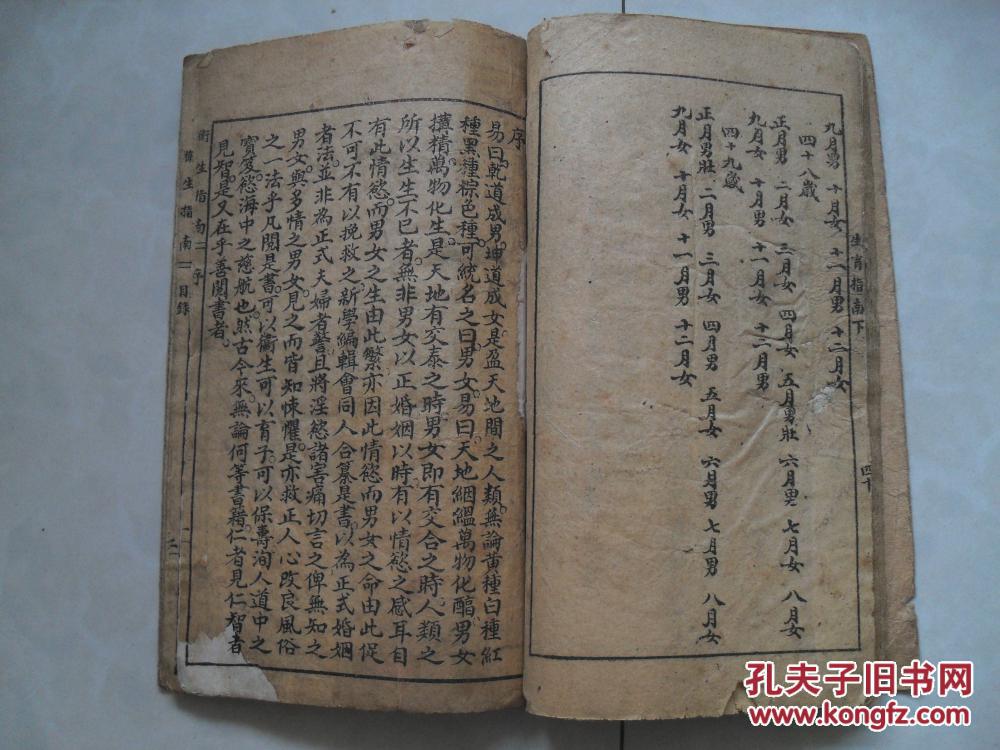 生育指南下
四十
九月男 十月女 十一月男 十二月女
四十八歲
正月男 二月女 三月女 四月女 五月男壯 六月男 七月女 八月女
九月女 十月男 十一月女 十二月男
四十九歲
正月男壯 二月男 三月女 四月男 五月女 六月男 七月男 八月女
九月女 十月女 十一月男 十二月女
序
易曰乾道成男坤道成女是盈天地間之人類無論黃種白種紅
種黑種棕色種可統名之曰男女易曰天地絪縕萬物化醇男女
搆精萬物化生是天地有交泰之時男女即有交合之時人類之
所以生生不已者無非男女以正婚姻以時有以情慾之感耳自
有此情慾而男女之生由此繁亦因此情慾而男女之命由此促
不可不有以挽救之新學編輯會同人合纂是書以為正式婚姻
者法並非為正式夫婦者警且將淫慾諸害痛切言之俾無知之
男女與多情之男女見之而皆知悚懼是亦救正人心改良風俗
之一法乎凡閱是書可以衞生可以育子可以保壽洵人道中之
寶笈慾海中之慈航也然古今來無論何等書籍仁者見仁智者
見智是又在乎善閱書者
衞生指南二 序
養生指南一 目錄
孔夫子旧书网
www.kongfz.com